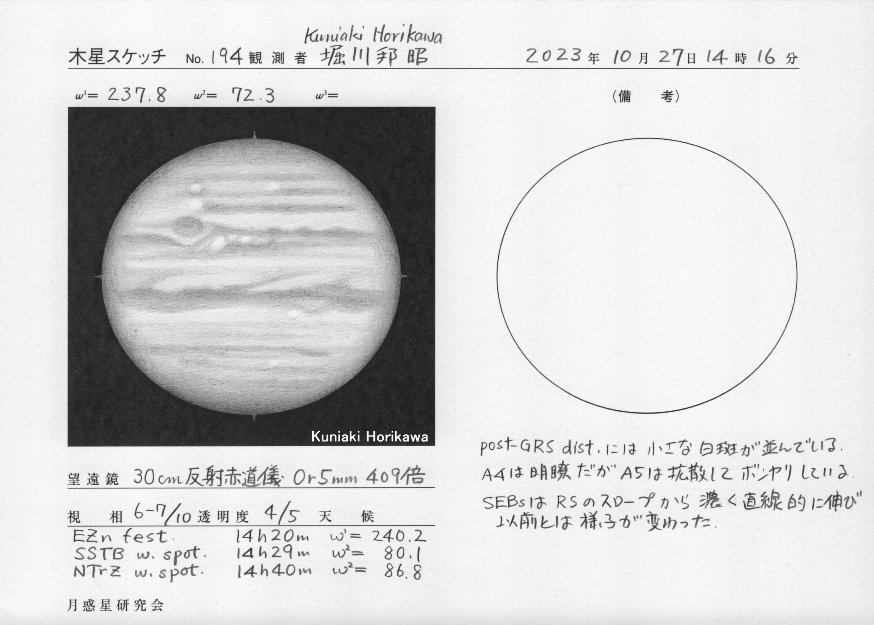 Kuniaki Horikawa
木星スケッチ No. 194 観測者 堀川邦昭 2023年 10月 27日 14時 16分
ω¹= 237.8 ω²= 72.3 ω³=
(備 考)
Kuniaki Horikawa
post-GRS dist. には 小さな 白斑が並んでいる.
A4は 明瞭だが A5は 拡散して ボンヤリしている.
SEBsは RSのスロープから 濃く直線的に伸び
以前とは 様子が変わった.
望遠鏡 30cm反射赤道儀 Or5mm 409倍
視 相 6-7/10 透明度 4/5 天 候
EZn fest. 14h20m ω¹= 240.2
SSTB w. spot. 14h29m ω²= 80.1
NTrZ w. spot. 14h40m ω²= 86.8
月惑星研究会